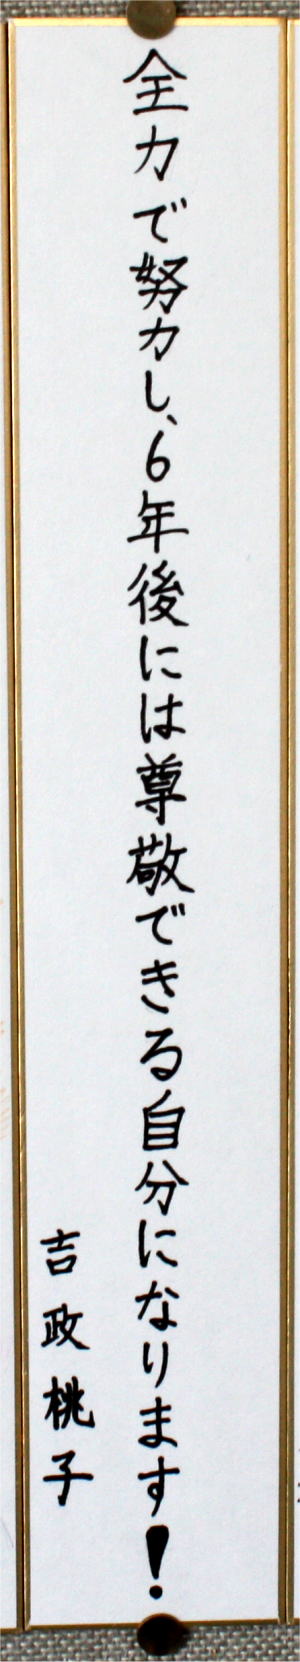 全力で努力し、6年後には尊敬できる自分になります！
吉政桃子